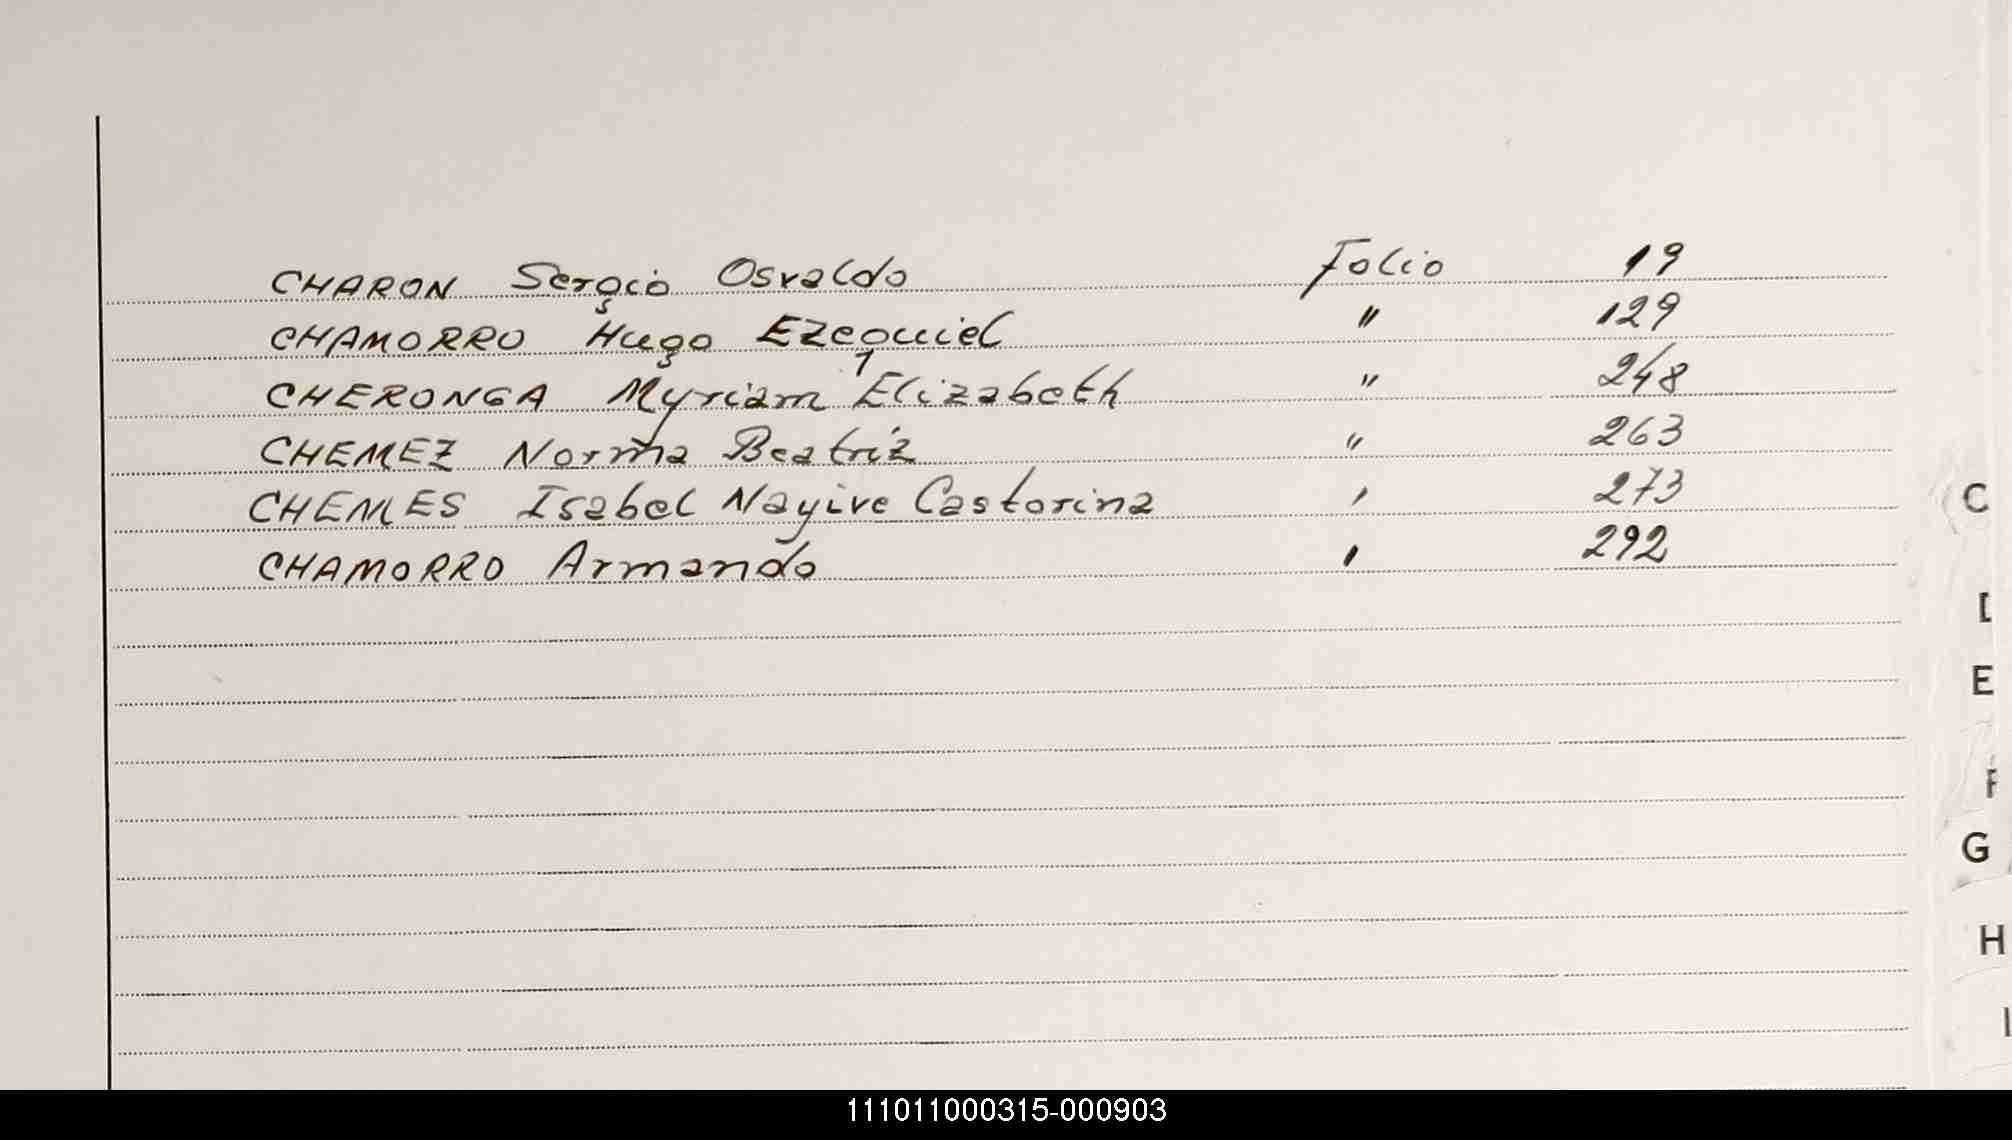 CHARON Sergio Osvaldo Folio 19
CHAMORRO Hugo Ezequiel " 129
CHERONGA Myriam Elizabeth " 248
CHEMEZ Norma Beatriz " 263
CHEMES Isabel Nayive Castorina ' 273
CHAMORRO Armando ' 292
C
D
E
F
G
H
I
111011000315-000903